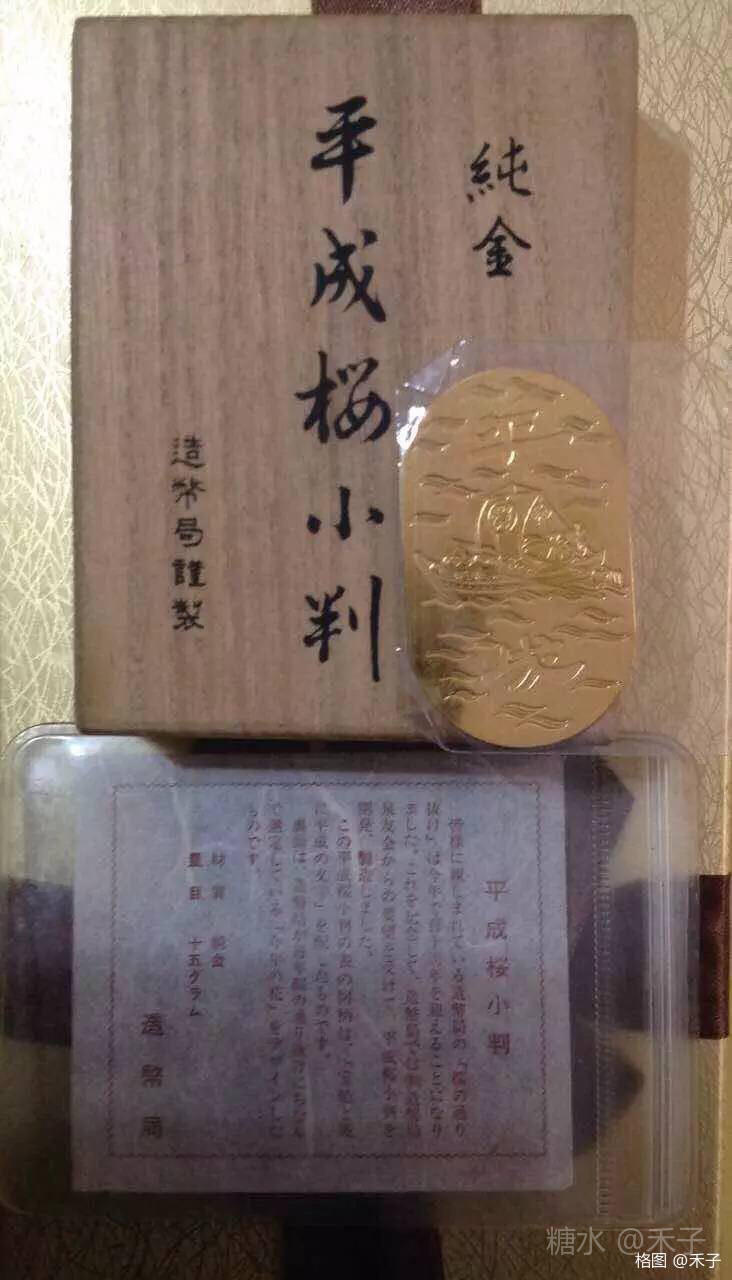 純金
平成桜小判
造幣局謹製
平成
平成桜小判
皆様に親しまれている造幣局の「桜の通り
抜け」は今年で百十年を迎えることになり
ました。これを記念して、造幣局では造幣局
泉友会からの要望を受けて、平成桜小判を
開発、製造しました。
この平成桜小判の表の図柄は、「宝船と波
に平成の文字」を配したものです。
裏面は、造幣局が毎年桜の通り抜けにちなん
で選定している「今年の花」をデザインした
ものです。
材質 純金
量目 十五グラム
造幣局
糖水 @禾子
格图 @禾子